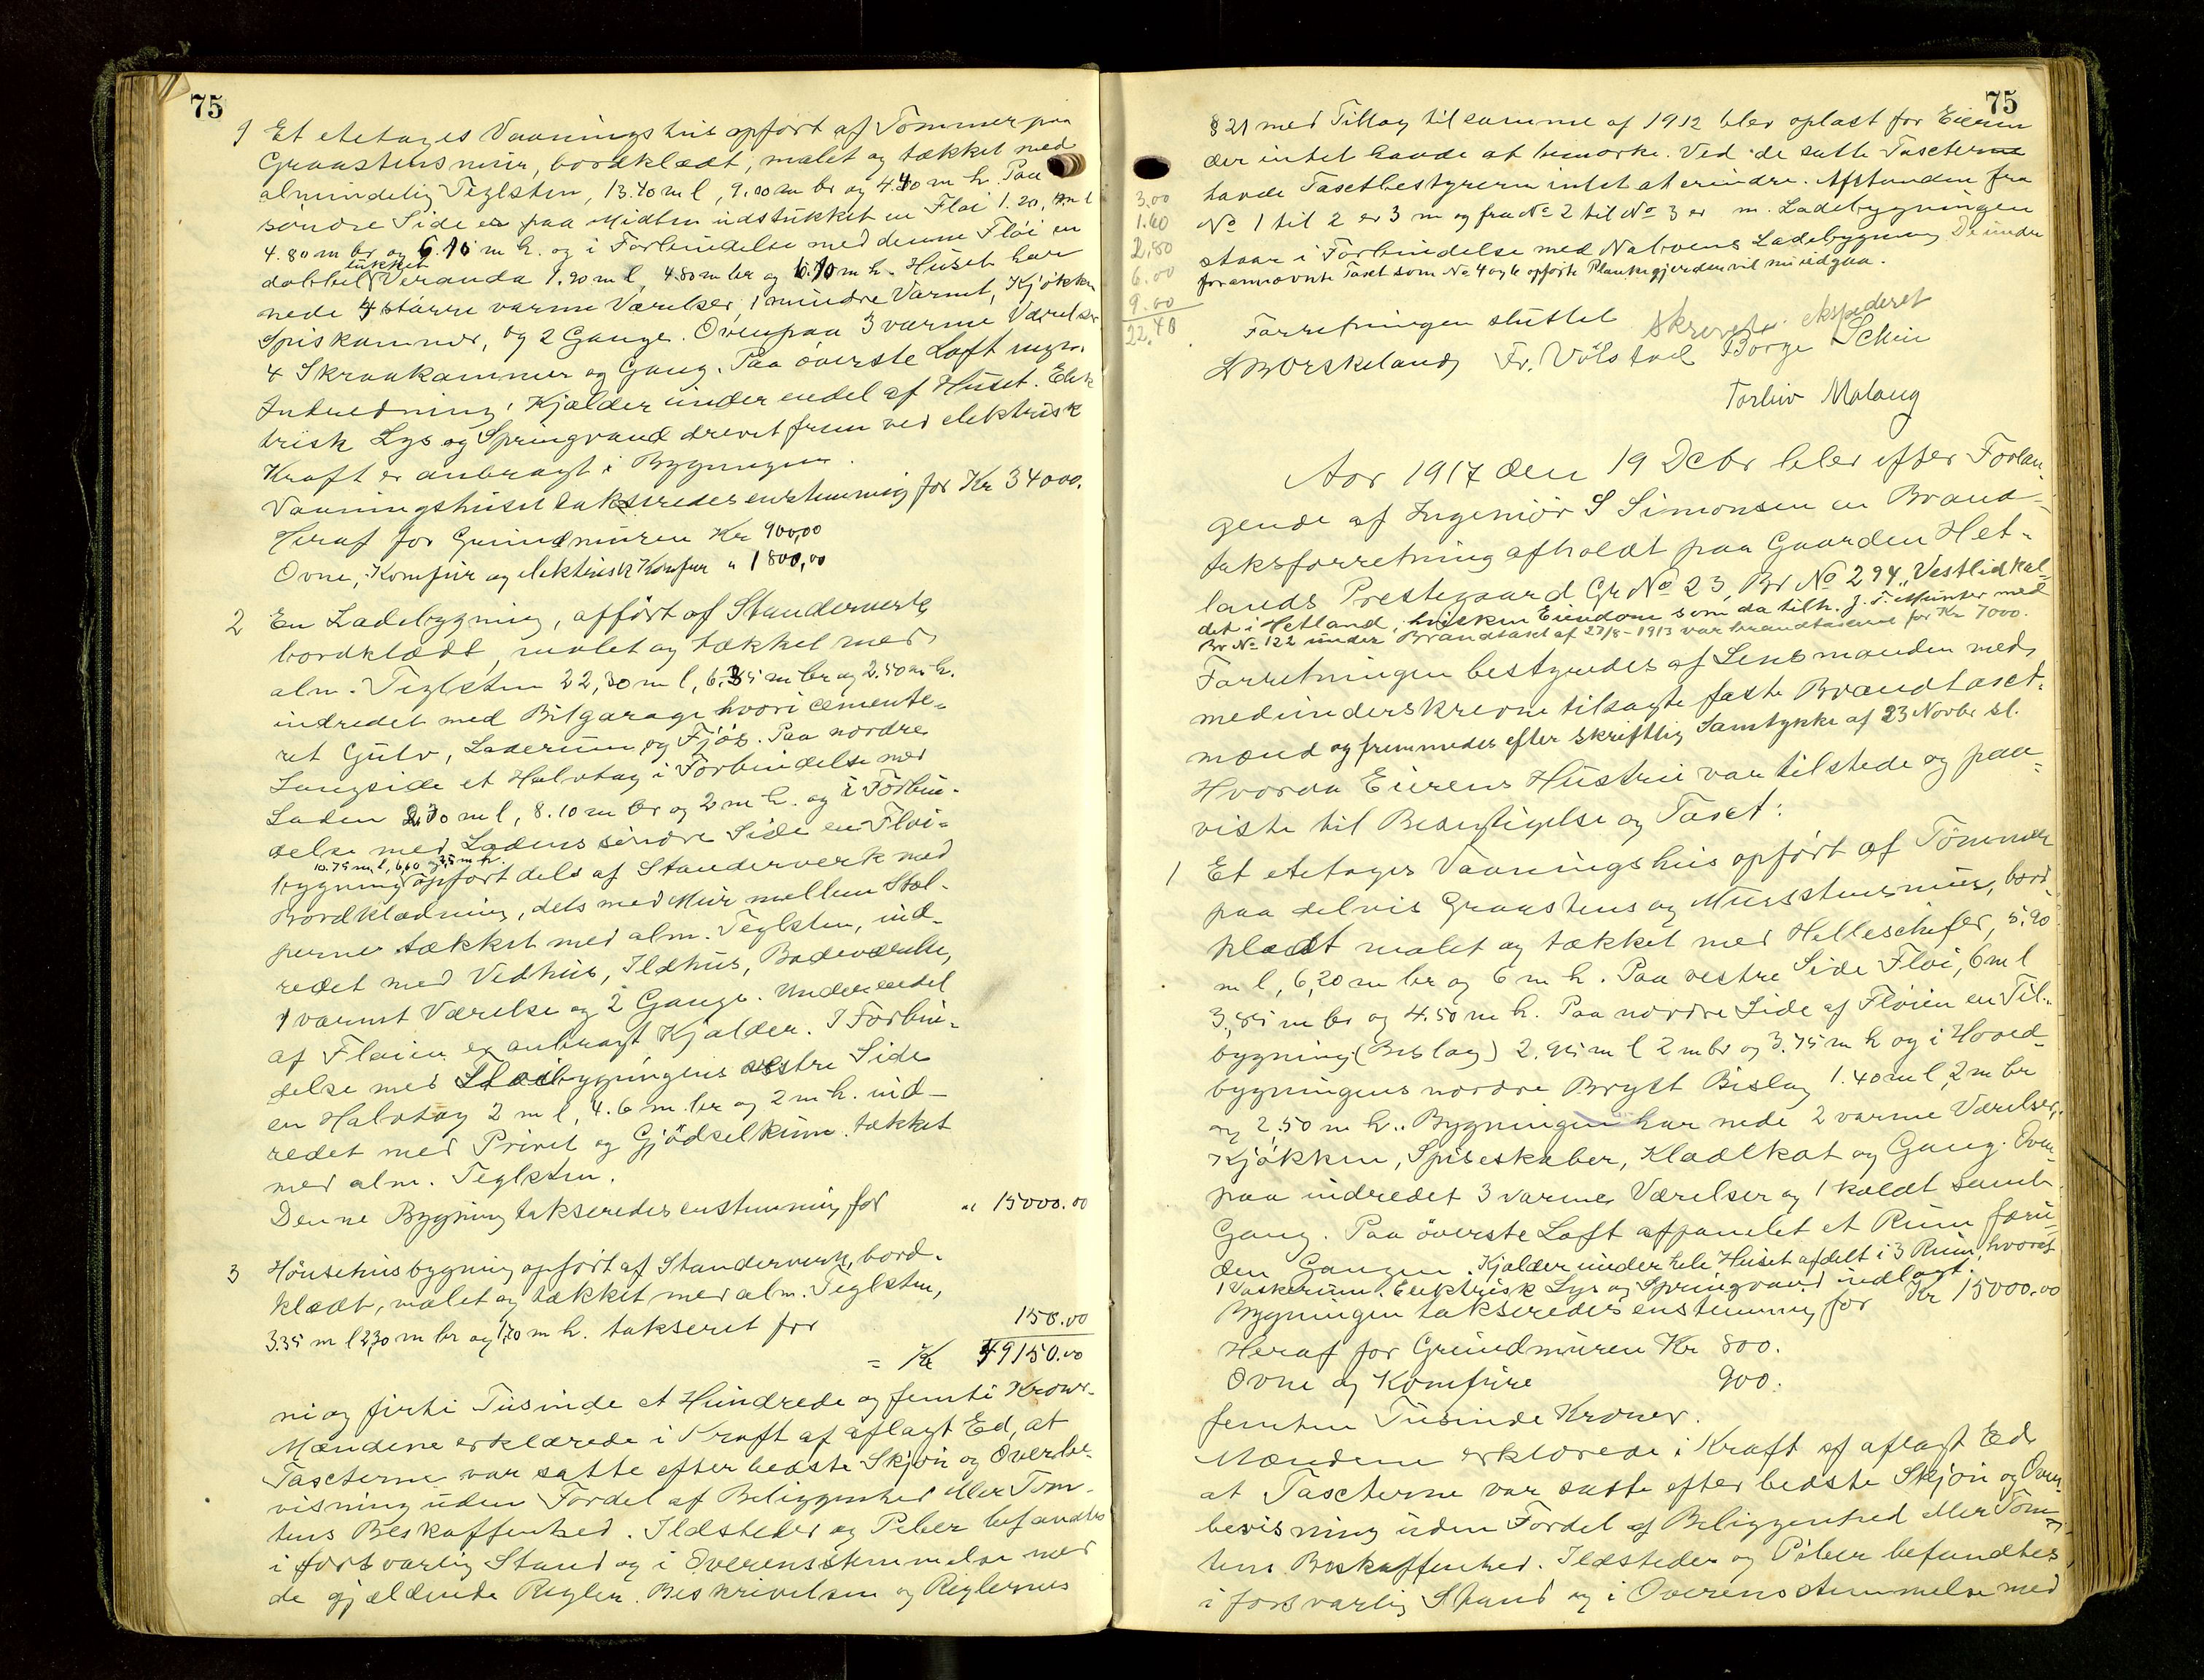 75
1 Et etetages Vaaningshus opført af Tømmer paa
Graastensmur, bordklædt, malet og tækket med
almindelig Teglsten, 13.70 m l, 9.00 m br og 4.40 m h. Paa
søndre Side er paa Midten udstukket en Fløi 1.20 m l
4.80 m br og 6.10 m h. og i Forbindelse med denne Fløi en
dobbel lukket Veranda 1.90 m l, 4.80 m br og 6.10 m h. Huset har
nede 4 større varme Værelser, 1 mindre Varmt, Kjøkken
Spiskammer, og 2 Gange. Ovenpaa 3 varme Værelser
4 Skraakammer og Gang. Paa øverste Loft ingen
Indredning. Kjælder under endel af Huset. Elek
trisk Lys og Springvand drevet frem ved elektrisk
Kraft er anbragt i Bygningen.
Vaaningshuset takseredes enstemmig for Kr 34000.
Heraf for Grundmuren Kr 900,00
Ovne, Komfur og elektrisk Komfur " 1800,00
2 En Ladebygning, opført af Standerverk,
bordklædt, malet og tækket med
alm. Teglsten 22,30 m l, 6.35 m br og 2.50 m h.
indredet med Bilgarage hvori cemente-
ret Gulv, Laderum og Fjøs. Paa nordre
Langside et Halvtag i Forbindelse med
Laden 2.70 m l, 8.10 m br og 2 m h. og i Forbin-
delse med Ladens søndre Side en Fløi-
10.75 m l, 6,60 og 3,5 m h.
bygning opført dels af Standerverk med
Bordklædning, dels med Mur mellem Stol-
perne tækket med alm. Teglsten, ind-
redet med Vedhus, Ildhus, Badeværelse,
1 varmt Værelse og 2 Gange. Under endel
af Fløien er anbragt Kjælder. I Forbin-
delse med Fløibygningens vestre Side
en Halvtag 2 m l, 4.6 m br og 2 m h. ind-
redet med Privet og Gjødselkum. tækket
med alm. Teglsten.
Denne Bygning takseredes enstemmig for " 15000.00
3 Hønsehusbygning opført af Standerverk, bord-
klædt, malet og tækket med alm. Teglsten,
3.35 m l 2,30 m br og 1,70 m h. takseret for 150.00
= Kr 49150.00
ni og firti Tusinde et Hundrede og femti Kroner-
Mændene erklærede i Kraft af aflagt Ed, at
Taxterne var satte efter bedste Skjøn og Overbe-
visning uden Fordel af Beliggenhed eller Tom-
tens Beskaffenhed. Ildsteder og Peber befandtes
i forsvarlig Stand og i Overensstemmelse med
de gjældende Regler. Beskrivelsen og Reglernes
75
§ 21 med Tillæg til samme af 1912 blev oplæst for Eieren
der intet havde at bemærke. Ved de satte Taxterne
havde Taxtbestyreren intet at erindre. Afstanden fra
No 1 til 2 er 3 m og fra No 2 til No 3 er m. Ladebygningen
staar i Forbindelse med Naboens Ladebygning De under
forannævnte Taxt som No 4 og 6 opførte Plankegjerder vil nu udgaa.
3.00
1.60
2.80
6.00
9.00
22.40
Forretningen sluttet Skrevet. ekspederet
Fr. Vølstad Børge
Torleiv Malaug
Aar 1917 den 19 Dcbr blev efter Forlan
gende af Ingeniør S Simonsen en Brand-
taksforretning afholdt paa Gaarden Het-
lands Prestegaard Gr No 23, Br No 294 "Vestlid kal-
det i Hetland, hvilken Eiendom som da tilh. J. T. Munter med
Br No 122 under Brandtaxt af 27/8-1913 var brandtaxeret for Kr 7000.
Forretningen bestyredes af Lensmanden med
medunderskrevne tilsagte faste Brandtaxt-
mænd og fremmedes efter skriftlig Samtykke af 23 Novbr sl.
Hvorda Eierens Hustru var tilstede og paa-
viste til Besigtigelse og Taxt:
1 Et etetages Vaaningshus opført af Tømmer
paa delvis Graastens og Murstensmur, bord-
klædt malet og tækket med Helleskifer, 5,90
m l, 6,20 m br og 6 m h. Paa vestre Side Fløi, 6 m l
3,85 m br og 4.50 m h. Paa nordre Side af Fløien en Til-
bygning (Bislag) 2.95 m l 2 m br og 3.75 m h og i Hoved-
bygningens nordre Bryst Bislag 1.40 m l, 2 m br
og 2,50 m h. Bygningen har nede 2 varme Værelser,
Kjøkken, Spiseskaber, Klædekot og Gang. Oven-
paa indredet 3 varme Værelser og 1 koldt samt
Gang. Paa øverste Loft afpanelet et Rum foru-
den Gangen. Kjælder under hele Huset afdelt i 3 Rum, hvoraf
1 Vaskerum. Elektrisk Lys og Springvand indlagt.
Bygningen takseredes enstemmig for Kr 15000.00
Heraf for Grundmuren Kr 800.
Ovne og Komfure 900.
femten Tusinde Kroner.
Mændene erklærede i Kraft af aflagt Ed
at Taxterne var satte efter bedste Skjøn og Over-
bevisning uden Fordel af Beliggenhed eller Tom-
tens Beskaffenhed. Ildsteder og Piber befandtes
i forsvarlig Stand og i Overensstemmelse med